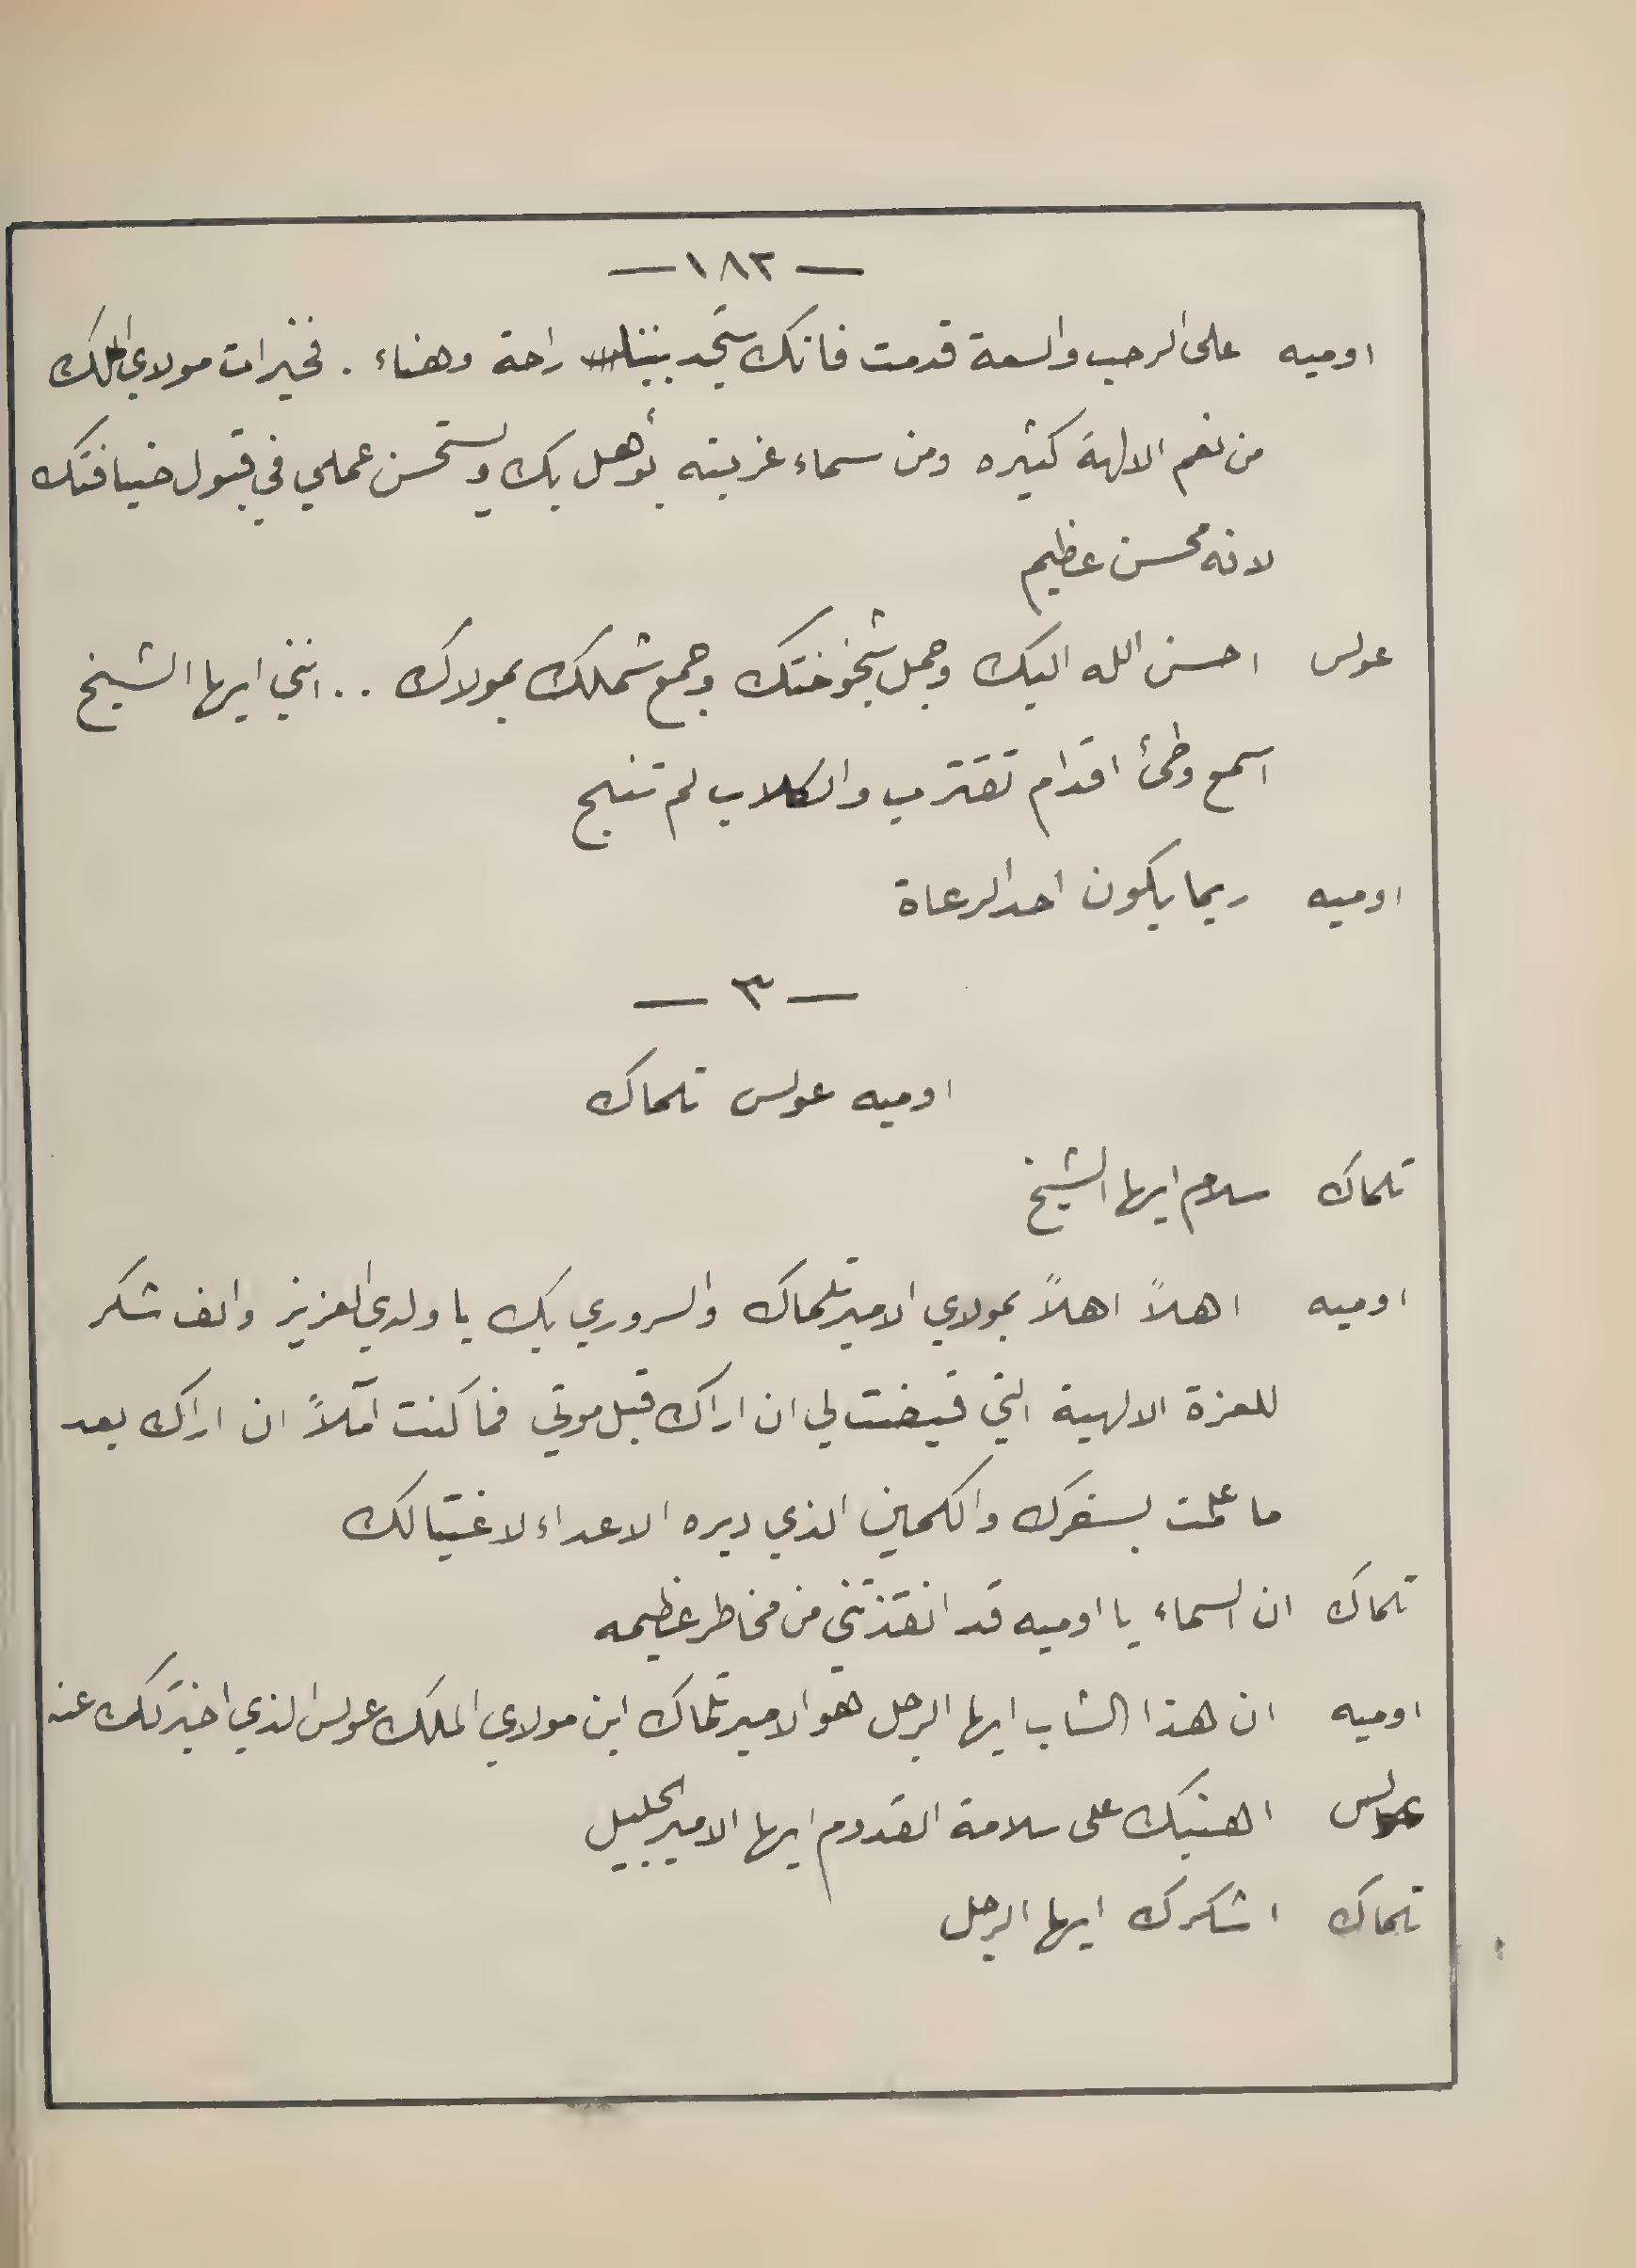 — ١٨٢ —
اوميه على الرحب والسعة قدمت فانك ستجد بيننا راحة وهناء . فخيرات مولاي الملك
من نعم الالهة كثيره ومن سماء غربته يؤهل بك ويستحسن عملي في قبول ضيافتك
لانه محسن عظيم
عولس احسن الله اليك وجمل شيخوختك وجمع شملك بمولاك . . انني ايها الشيخ
اسمع وطئ اقدام تقترب والكلاب لم تنبح
اوميه ربما يكون احد الرعاة
— ٣ —
اوميه عولس تلماك
تلماك سلام ايها الشيخ
اوميه اهلاً اهلاً بمولاي الامير تلماك والسروري بك يا ولدي العزيز والف شكر
للعزة الالهية التي قيضت لي ان اراك قبل موتي فما كنت آملاً ان اراك بعد
ما علمت بسفرك والكمين الذي دبره الاعداء لاغتيالك
تلماك ان السماء يا اوميه قد انقذتني من مخاطر عظيمه
اوميه ان هذا الشاب ايها الرجل هو الامير تلماك ابن مولاي الملك عولس الذي اخبرتك عنه
عولس اهنيك على سلامة القدوم ايها الامير الجليل
تلماك اشكرك ايها الرجل